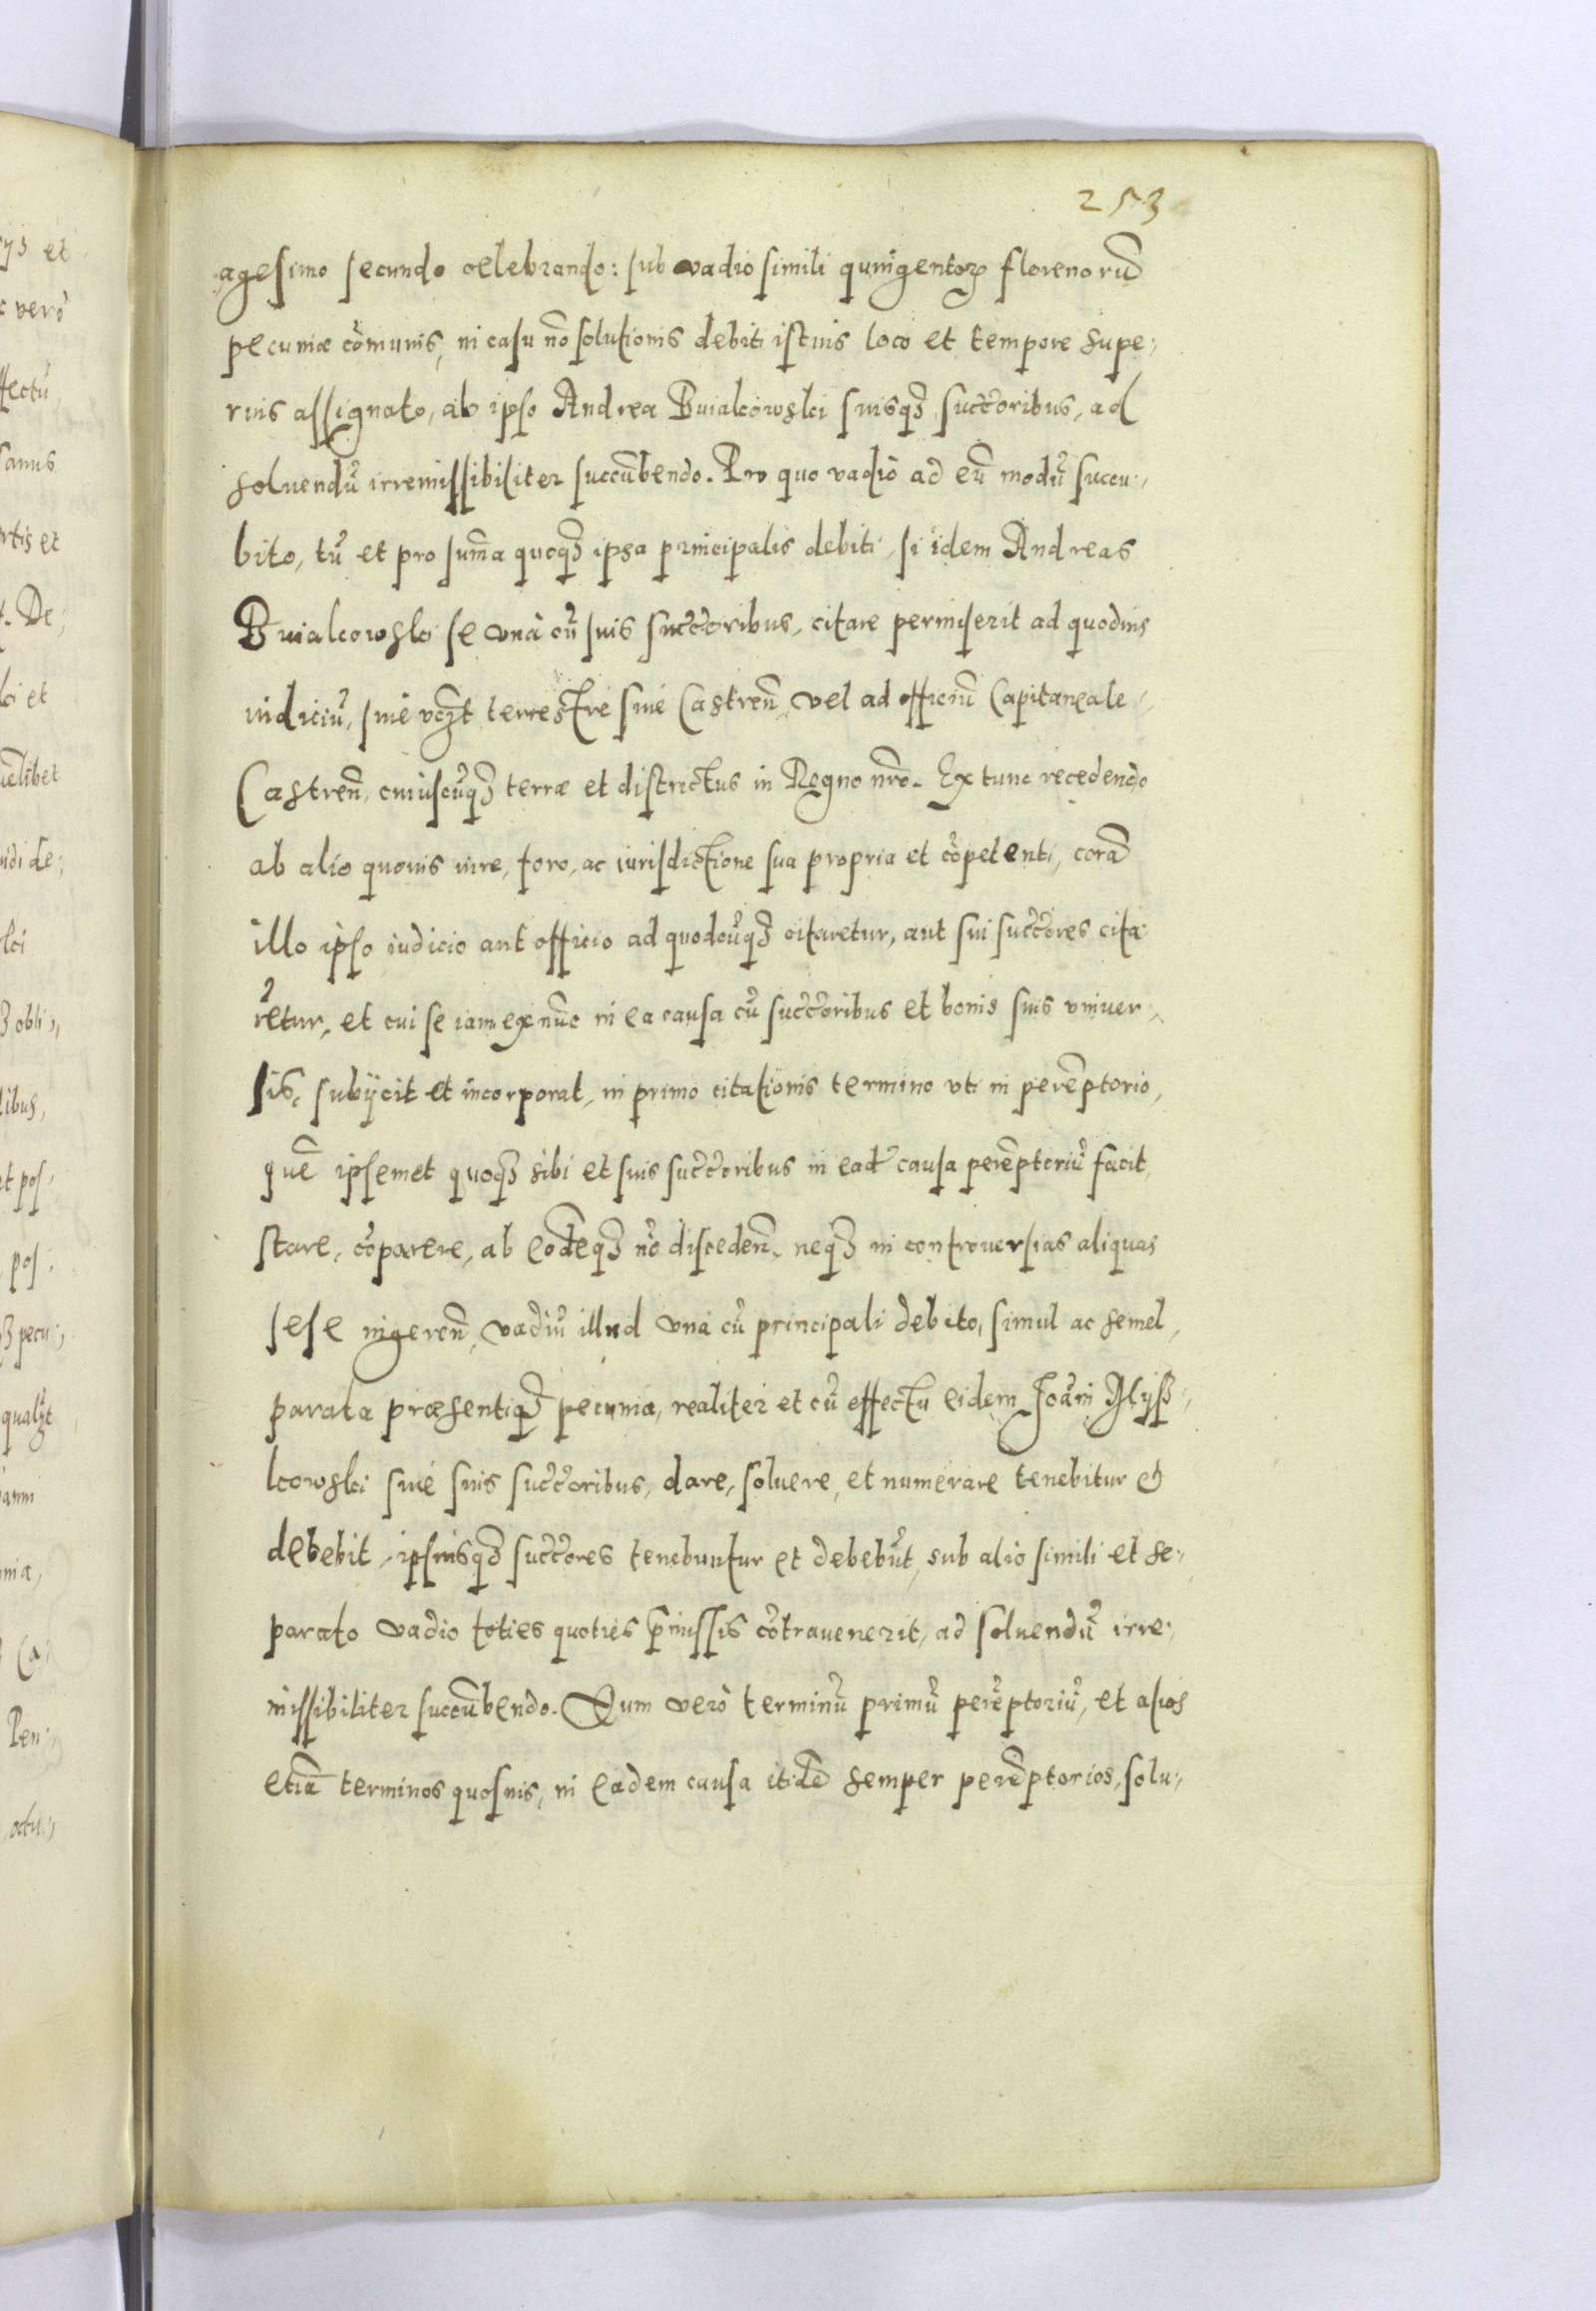 253
agesimo secundo celebrando: sub vadio simili quingentorꝫ florenorũ
pecuniæ cõmunis, in casu nõ solutionis debiti istius loco et tempore supe:,
rius assignato, ab ipso Andrea Buialkowski suisqꝫ succ̃c̃oribus, ad
soluendũ irremissibiliter succũbendo. Pro quo vadio ad eũ modũ succu:,
bito, tũ et pro sum̃a quoqꝫ ipsa principalis debiti, si idem Andreas
Buialkowski se vnà cũ suis succ̃c̃oribus, citare permiserit ad quoduis
iudiciũ, siuè vcꝫt terrestre siuè Castreñ, vel ad officiũ Capitaneale,
Castreñ, cuiuscũqꝫ terræ et districtus in Regno nr̃o. Ex tunc recedendo
ab alio quouis iure, foro, ac iurisdictione sua propria et cõpetenti, corã
illo ipso iudicio aut officio ad quodcũqꝫ citaretur, aut sui succ̃c̃ores cita:
rẽtur, et cui se iam ex nũc in ea causa cũ succ̃c̃oribus et bonis suis vniuer:,
sis, subijcit et incorporat, in primo citationis termino vti in perẽptorio,
quẽ ipsemet quoqꝫ sibi et suis succ̃c̃oribus in eadẽ causa perẽptoriũ facit,
stare, cõparere, ab eodẽqꝫ nõ discedeñ, neqꝫ in controuersias aliquas
sese ingereñ, vadiũ illud vnà cũ principali debito, simul ac semel,
parata præsentiqꝫ pecunia, realiter et cũ effectu eidem Joãni Glÿß:,
kowski siuè suis succ̃c̃oribus, dare, soluere, et numerare tenebitur &
debebit, ipsiusqꝫ succ̃c̃ores tenebuntur et debebũt, sub alio simili et se:,
parato vadio toties quoties p̃missis cõtrauenerit, ad soluendũ irre:,
missibiliter succũbendo. Quum verò terminũ primũ perẽptoriũ, et alios
etiã terminos quosuis, in eadem causa itidẽ semper perẽptorios, solu:,